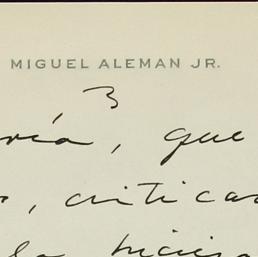 MIGUEL ALEMAN JR.
3
ría, que
, critica
la hicie